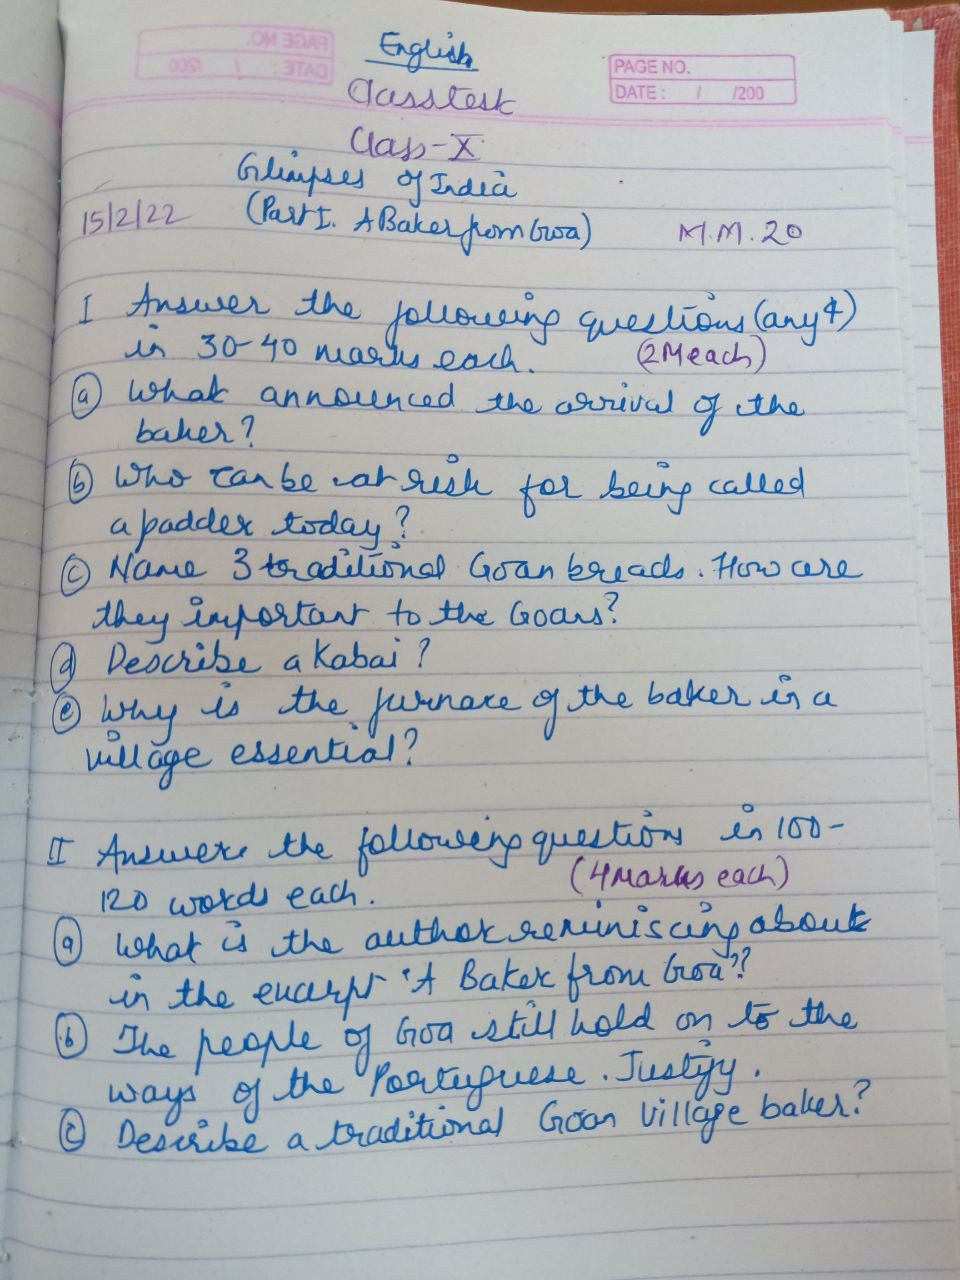 English
PAGE NO.
DATE: / /200
Classtest
Class-X
Glimpses of India
15/2/22 (Part I. A Baker from Goa) M.M. 20
I Answer the following questions (any 4)
in 30-40 marks each. (2M each)
(a) What announced the arrival of the
baker?
(b) Who can be at risk for being called
a padder today?
(c) Name 3 traditional Goan breads. How are
they important to the Goans?
(d) Describe a Kabai?
(e) Why is the furnace of the baker in a
village essential?
II Answer the following questions in 100-
120 words each. (4 marks each)
(a) What is the author reminiscing about
in the excerpt 'A Baker from Goa'?
(b) The people of Goa still hold on to the
ways of the Portuguese. Justify.
(c) Describe a traditional Goan Village baker?